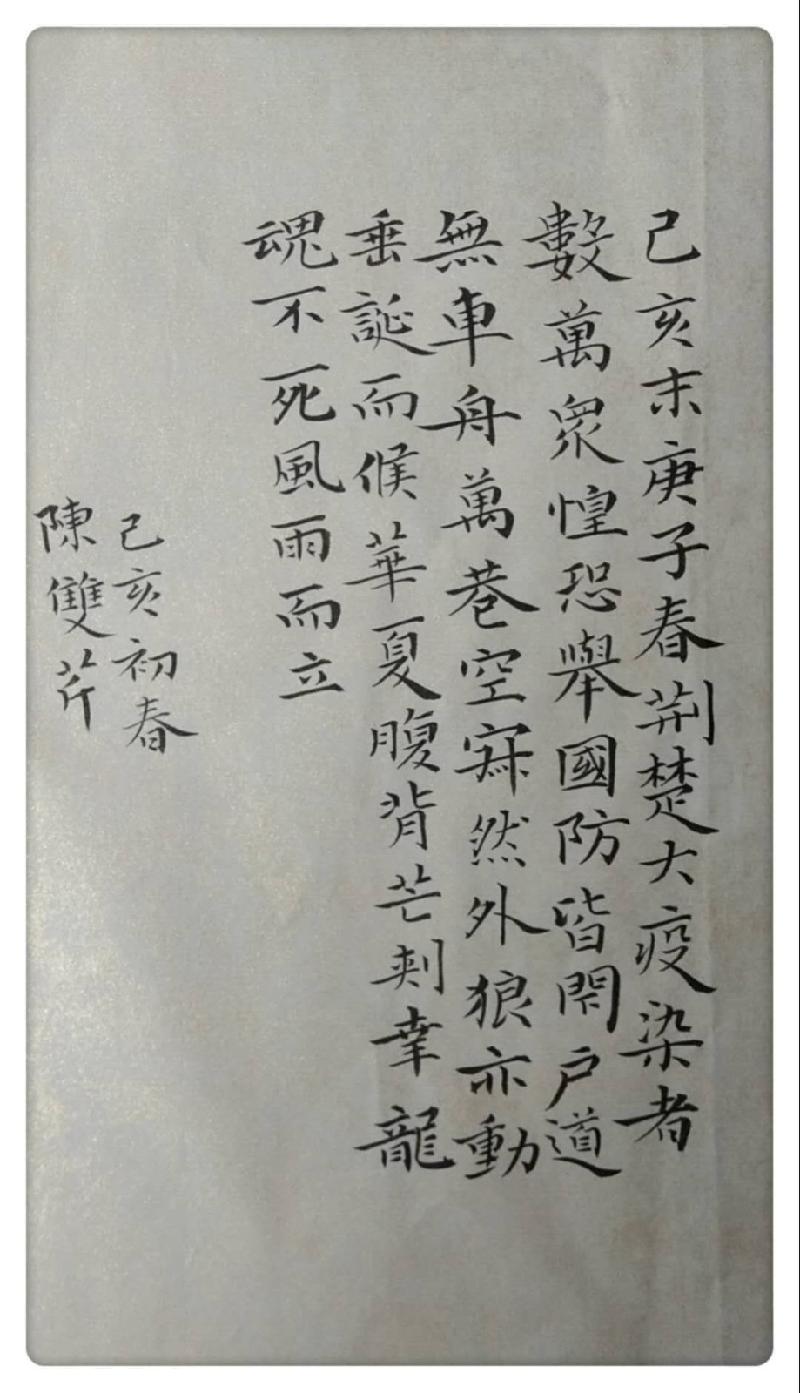 己亥末庚子春荆楚大疫染者
數萬衆惶恐舉國防皆閑戶道
無車舟萬巷空寂然外狼亦動
垂誕而候華夏腹背芒刺幸龍
魂不死風雨而立
己亥初春
陳雙芹